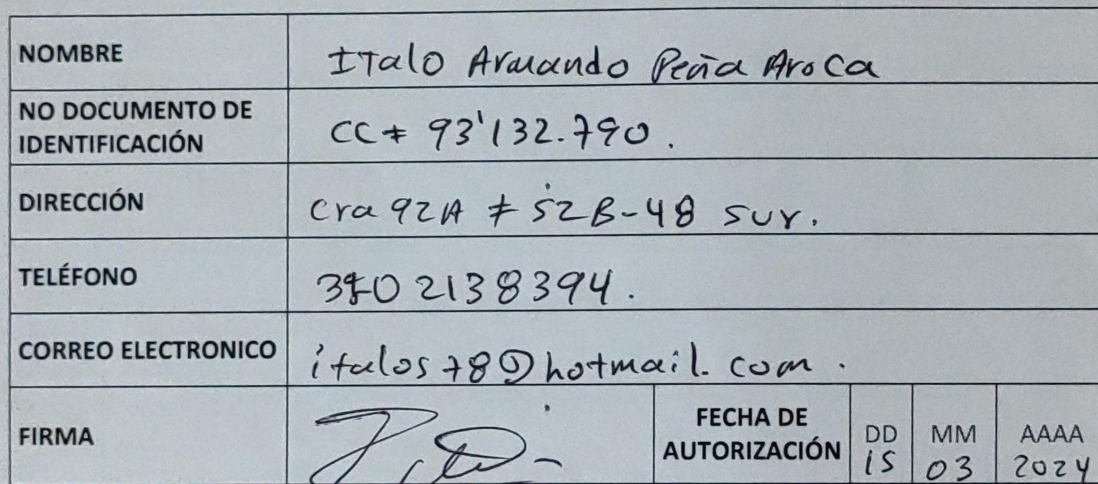 NOMBRE ITalo Armando Peña Aroca
NO DOCUMENTO DE
IDENTIFICACIÓN CC# 93'132.790.
DIRECCIÓN cra 92A # 52B-48 sur.
TELÉFONO
CORREO ELECTRONICO italos78@hotmail.com.
FIRMA FECHA DE
AUTORIZACIÓN DD MM AAAA
15 03 2024